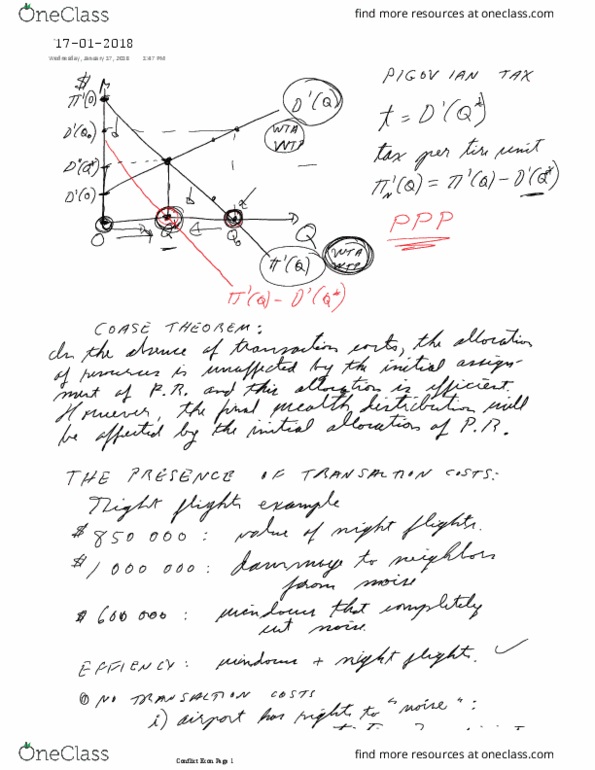 OneClass
find more resources at oneclass.com
17-01-2018
Wednesday, January 17, 2018 2:47 PM
$
π'(0)
D'(Q₀)
D'(Q*)
D'(0)
d
D'(Q)
WTA
WTP
PIGOVIAN TAX
t = D'(Q*)
tax per unit
π'_N(Q) = π'(Q) - D'(Q*)
PPP
0
Q*
Q₀
Q
π'(Q)
WTA
WTP
π'(Q) - D'(Q*)
COASE THEOREM:
In the absence of transaction costs, the allocation
of resources is unaffected by the initial assign-
ment of P.R. and this allocation is efficient.
However, the final wealth distribution will
be affected by the initial allocation of P.R.
THE PRESENCE OF TRANSACTION COSTS:
Night flights example
$ 850 000 : value of night flights.
$ 1 000 000 : damage to neighbors
from noise
$ 600 000 : windows that completely
cut noise.
EFFIENCY: windows + night flight. ✓
① NO TRANSACTION COSTS
i) airport has rights to "noise":
OneClass
Conflict Econ Page 1
find more resources at oneclass.com